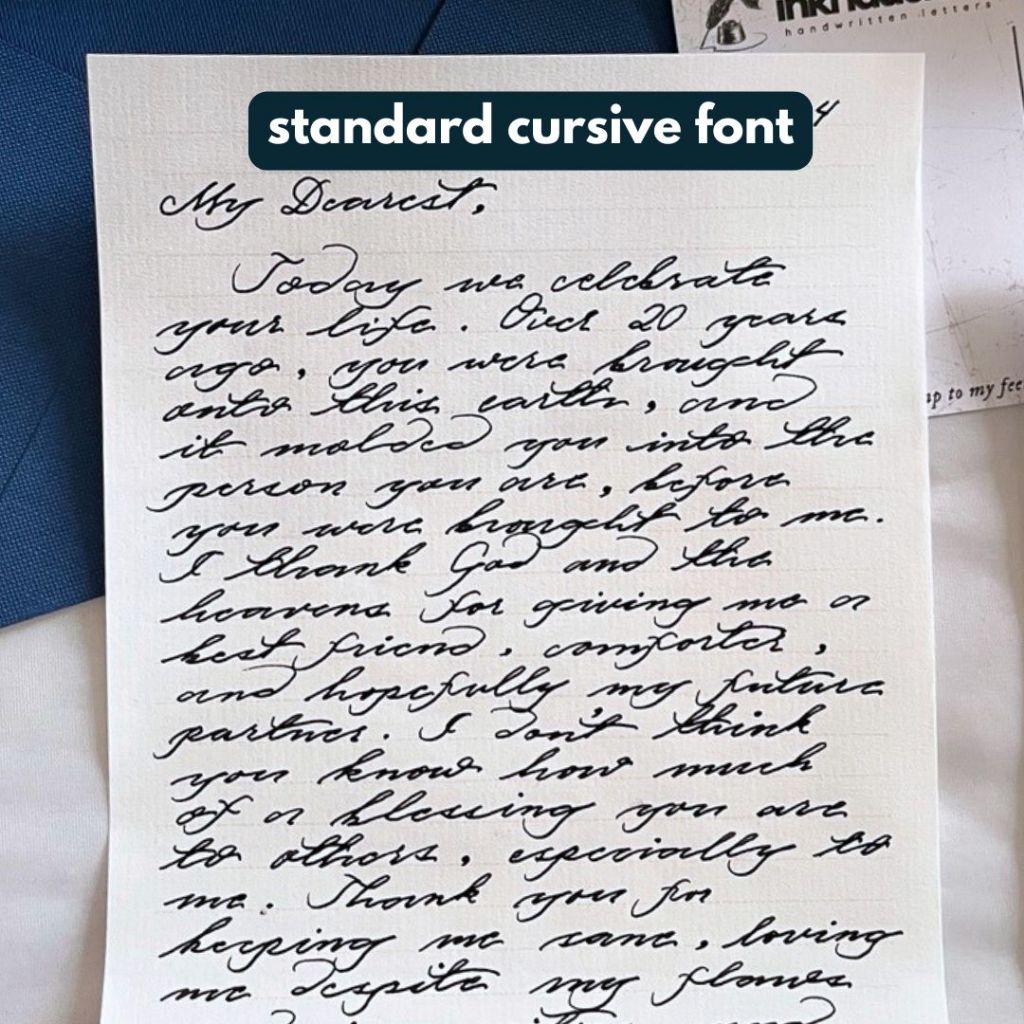 handwritten letters
standard cursive font
4
My Dearest,
Today we celebrate
your life. Over 20 years
ago, you were brought
onto this earth, and
it molded you into the
person you are, before
you were brought to me.
I thank God and the
heavens for giving me a
best friend, comforter,
and hopefully my future
partner. I don't think
you know how much
of a blessing you are
to others, especially to
me. Thank you for
keeping me sane, loving
me despite my flaws
up to my fee